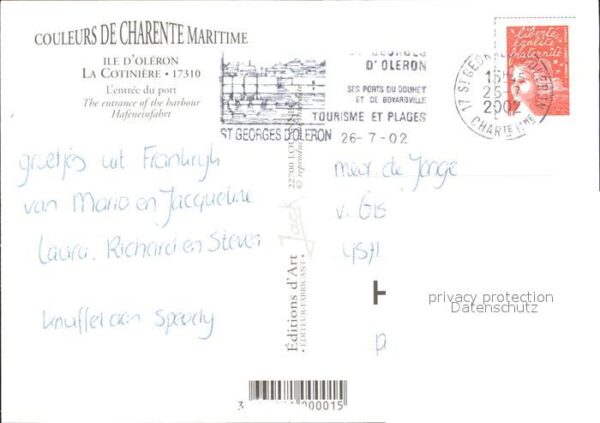 COULEURS DE CHARENTE MARITIME
ILE D'OLÉRON
LA COTINIÈRE • 17310
L'entrée du port
The entrance of the harbour
Hafeneinfahrt
ST GEORGES
D'OLERON
SES PORTS DU DOUHET
ET DE BOYARDVILLE
TOURISME ET PLAGES
ST GEORGES D'OLERON 26-7-02
liberté
égalité
fraternité
2002
groetjes uit Frankrijk
van Mario en Jacqueline
Laura, Richard en Steven
knuffel aan Speedy
Editions d'Art Jack
• ÉDITEUR-FABRICANT •
meur. de Jonge
privacy protection
Datenschutz
3
000015